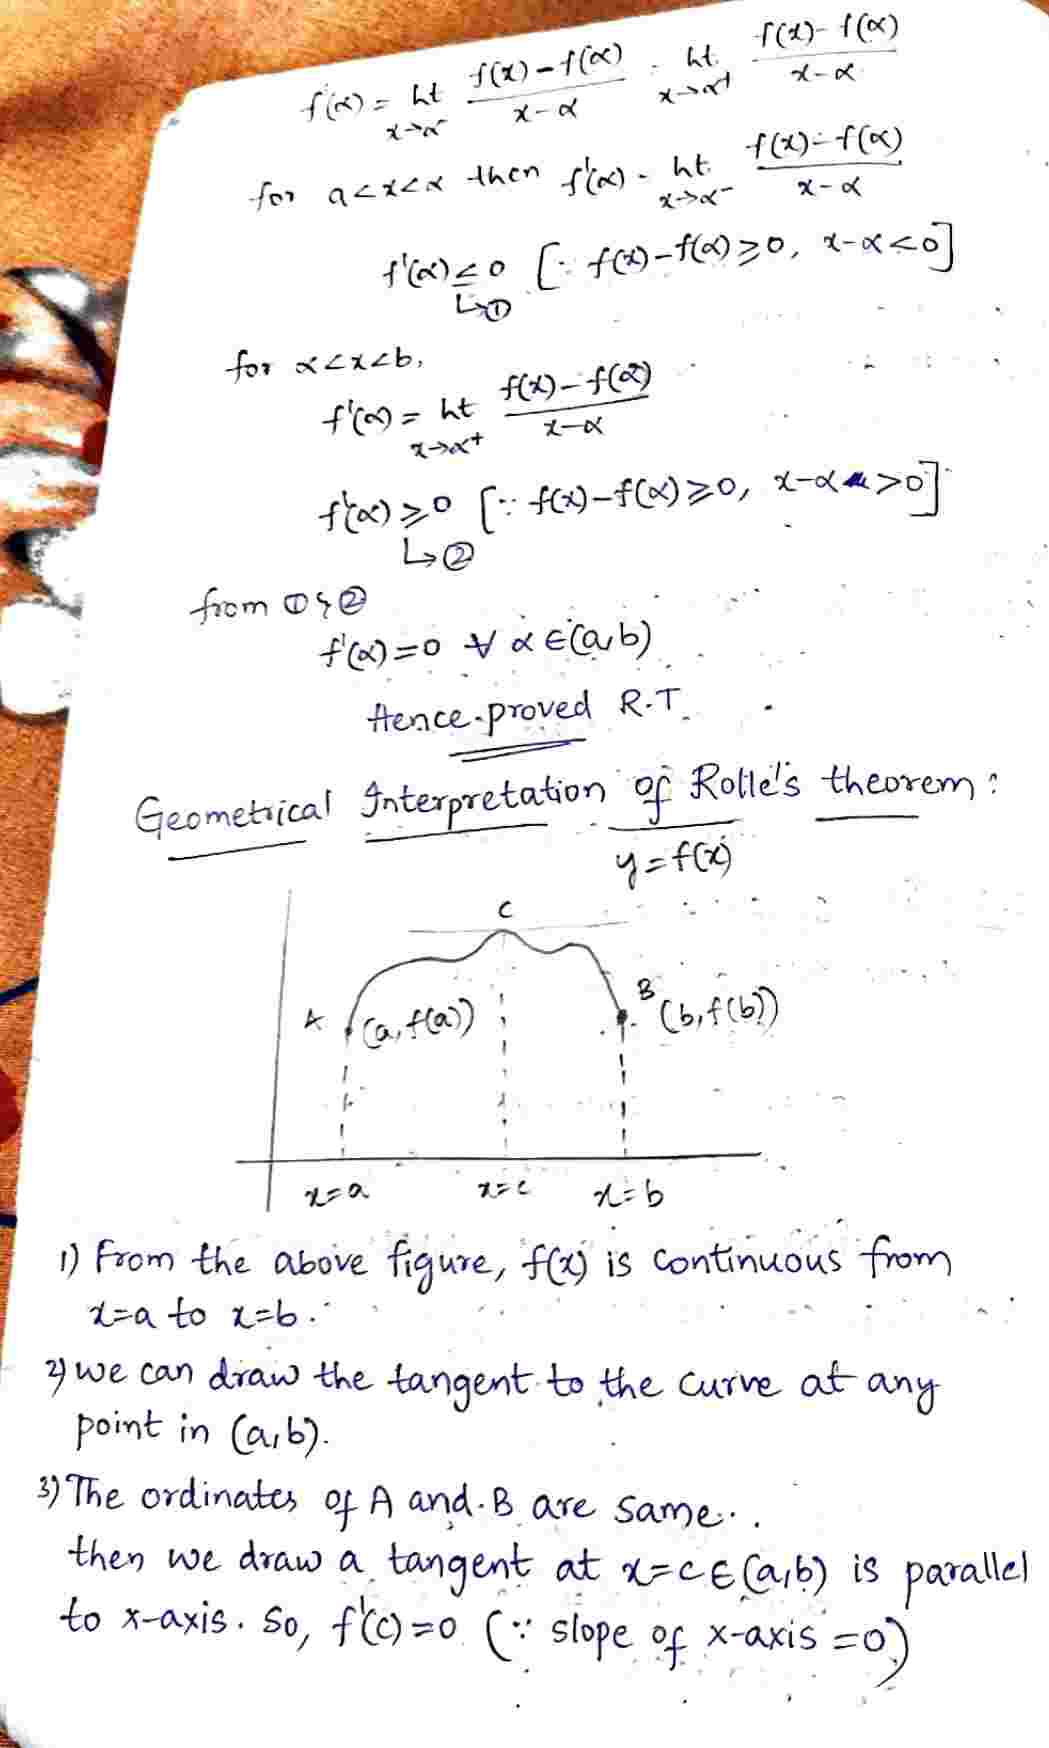 f'(α) = Lt x→α⁻ f(x)-f(α) / x-α = Lt x→α⁺ f(x)-f(α) / x-α
for a<x<α then f'(α) = Lt x→α⁻ f(x)-f(α) / x-α
f'(α) ≤ 0 [∵ f(x)-f(α) ≥ 0, x-α < 0]
↳①
for α<x<b,
f'(α) = Lt x→α⁺ f(x)-f(α) / x-α
f'(α) ≥ 0 [∵ f(x)-f(α) ≥ 0, x-α > 0]
↳②
from ① & ②
f'(α) = 0 ∀ α ∈ (a,b)
Hence proved R.T.
Geometrical Interpretation of Rolle's theorem :
y = f(x)
C
A (a, f(a)) B (b, f(b))
x=a x=c x=b
1) From the above figure, f(x) is continuous from
x=a to x=b.
2) we can draw the tangent to the curve at any
point in (a,b).
3) The ordinates of A and B are same.
then we draw a tangent at x=c ∈ (a,b) is parallel
to x-axis. So, f'(c) = 0 (∵ slope of x-axis = 0)